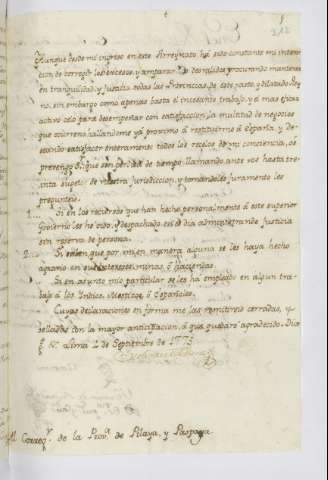 212
Aunque desde mi ingreso en este Virreynato ha sido constante mi inten
cion de corregir los excesos, y amparar los desvalidos procurando mantener
en tranquilidad, y Justicia todas las Provincias de este vasto, y dilatado Rey
no, sin embargo como apenas basta el incesante trabajo, y el mas eficaz
activo celo para desempeñar con satisfaccion la multitud de negocios
que ocurren; hallandome ya proximo à restituirme à España, y de
seando satisfacer enteramente todos los recelos de mi conciencia, os
prevengo, que sin perdida de tiempo, llamando ante vos hasta trein
ta sugetos de vuestra Jurisdiccion, y tomandoles juramento les
pregunteis.
1 Si en los recursos que han hecho personalmente à este superior
Govierno les he oido, y despachado en el dia administrando Justicia
sin reserva de persona.
2 Si saben que por mi, en manera alguna se les haya hecho
agravio en sus intereses, minas, ò haciendas.
Si en asunto mio particular se les ha empleado en algun tra-
bajo à los Indios, Mestizos, ò Españoles.
Cuyas declaraciones en forma me las remitireis cerradas, y
selladas con la mayor anticipacion, à que quedaré agradecido. Dios
gue à Vm. Lima 2 de Septiembre de 1775
Al Correxr. de la Prova. de Pilaya, y Paspaya